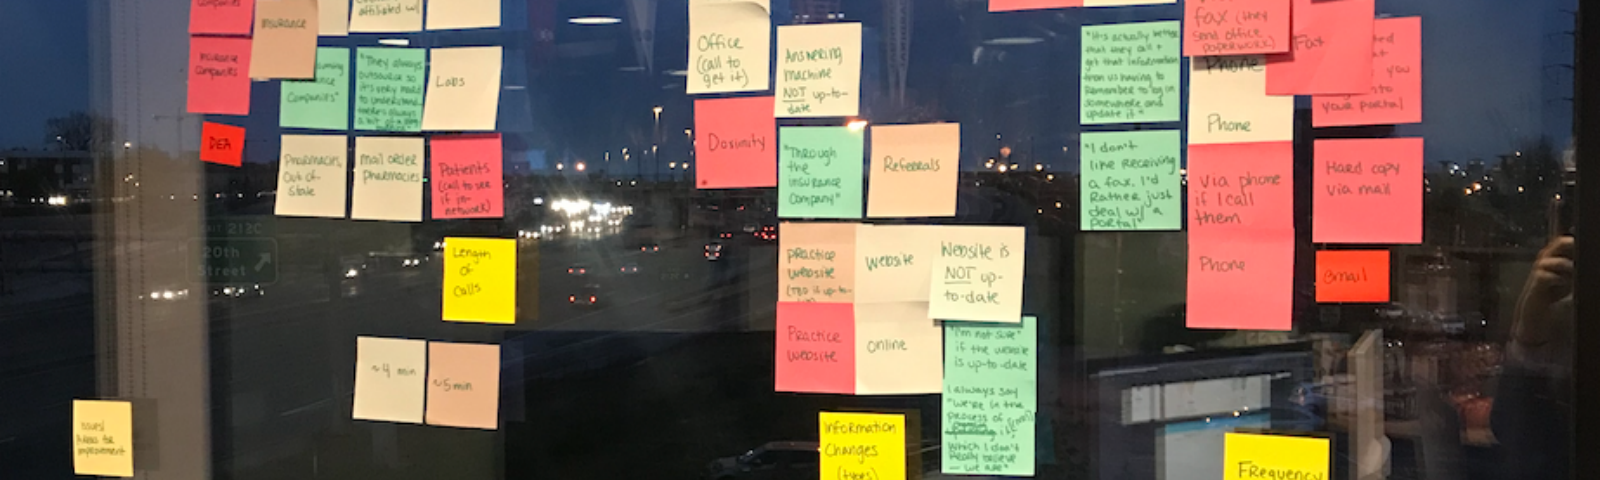 companies
Insurance
affiliated w/
Insurance
companies
Companies"
"They always
outsource so
it's very hard
to understand,
Labs
DEA
Pharmacies,
Out of-
State
Mail order
pharmacies
Patients
(call to see
if in-
network)
Length
of
Calls
~4 min
~5 min
Issues/
Ideas for
improvement
Office
(call to
get it)
Answering
machine
NOT up-to-
date
Doximity
"Through
the
insurance
company"
Referrals
practice
website
Website
Website is
NOT up-
to-date
Practice
website
Online
"I'm not sure"
if the website
is up-to-date
I always say
"we're in the
process of
which I don't
really believe
- we are"
Information
Changes
(types)
"It's actually better
that they call +
get that information
from us having to
Remember to log in
somewhere and
update it"
"I don't
like receiving
a fax. I'd
Rather just
deal w/ a
portal"
fax (they
send office
paperwork)
Phone
Phone
Via phone
if I call
them
Phone
Fax
you
your portal
Hard copy
via mail
email
Frequency
EXIT 212C
20th
Street